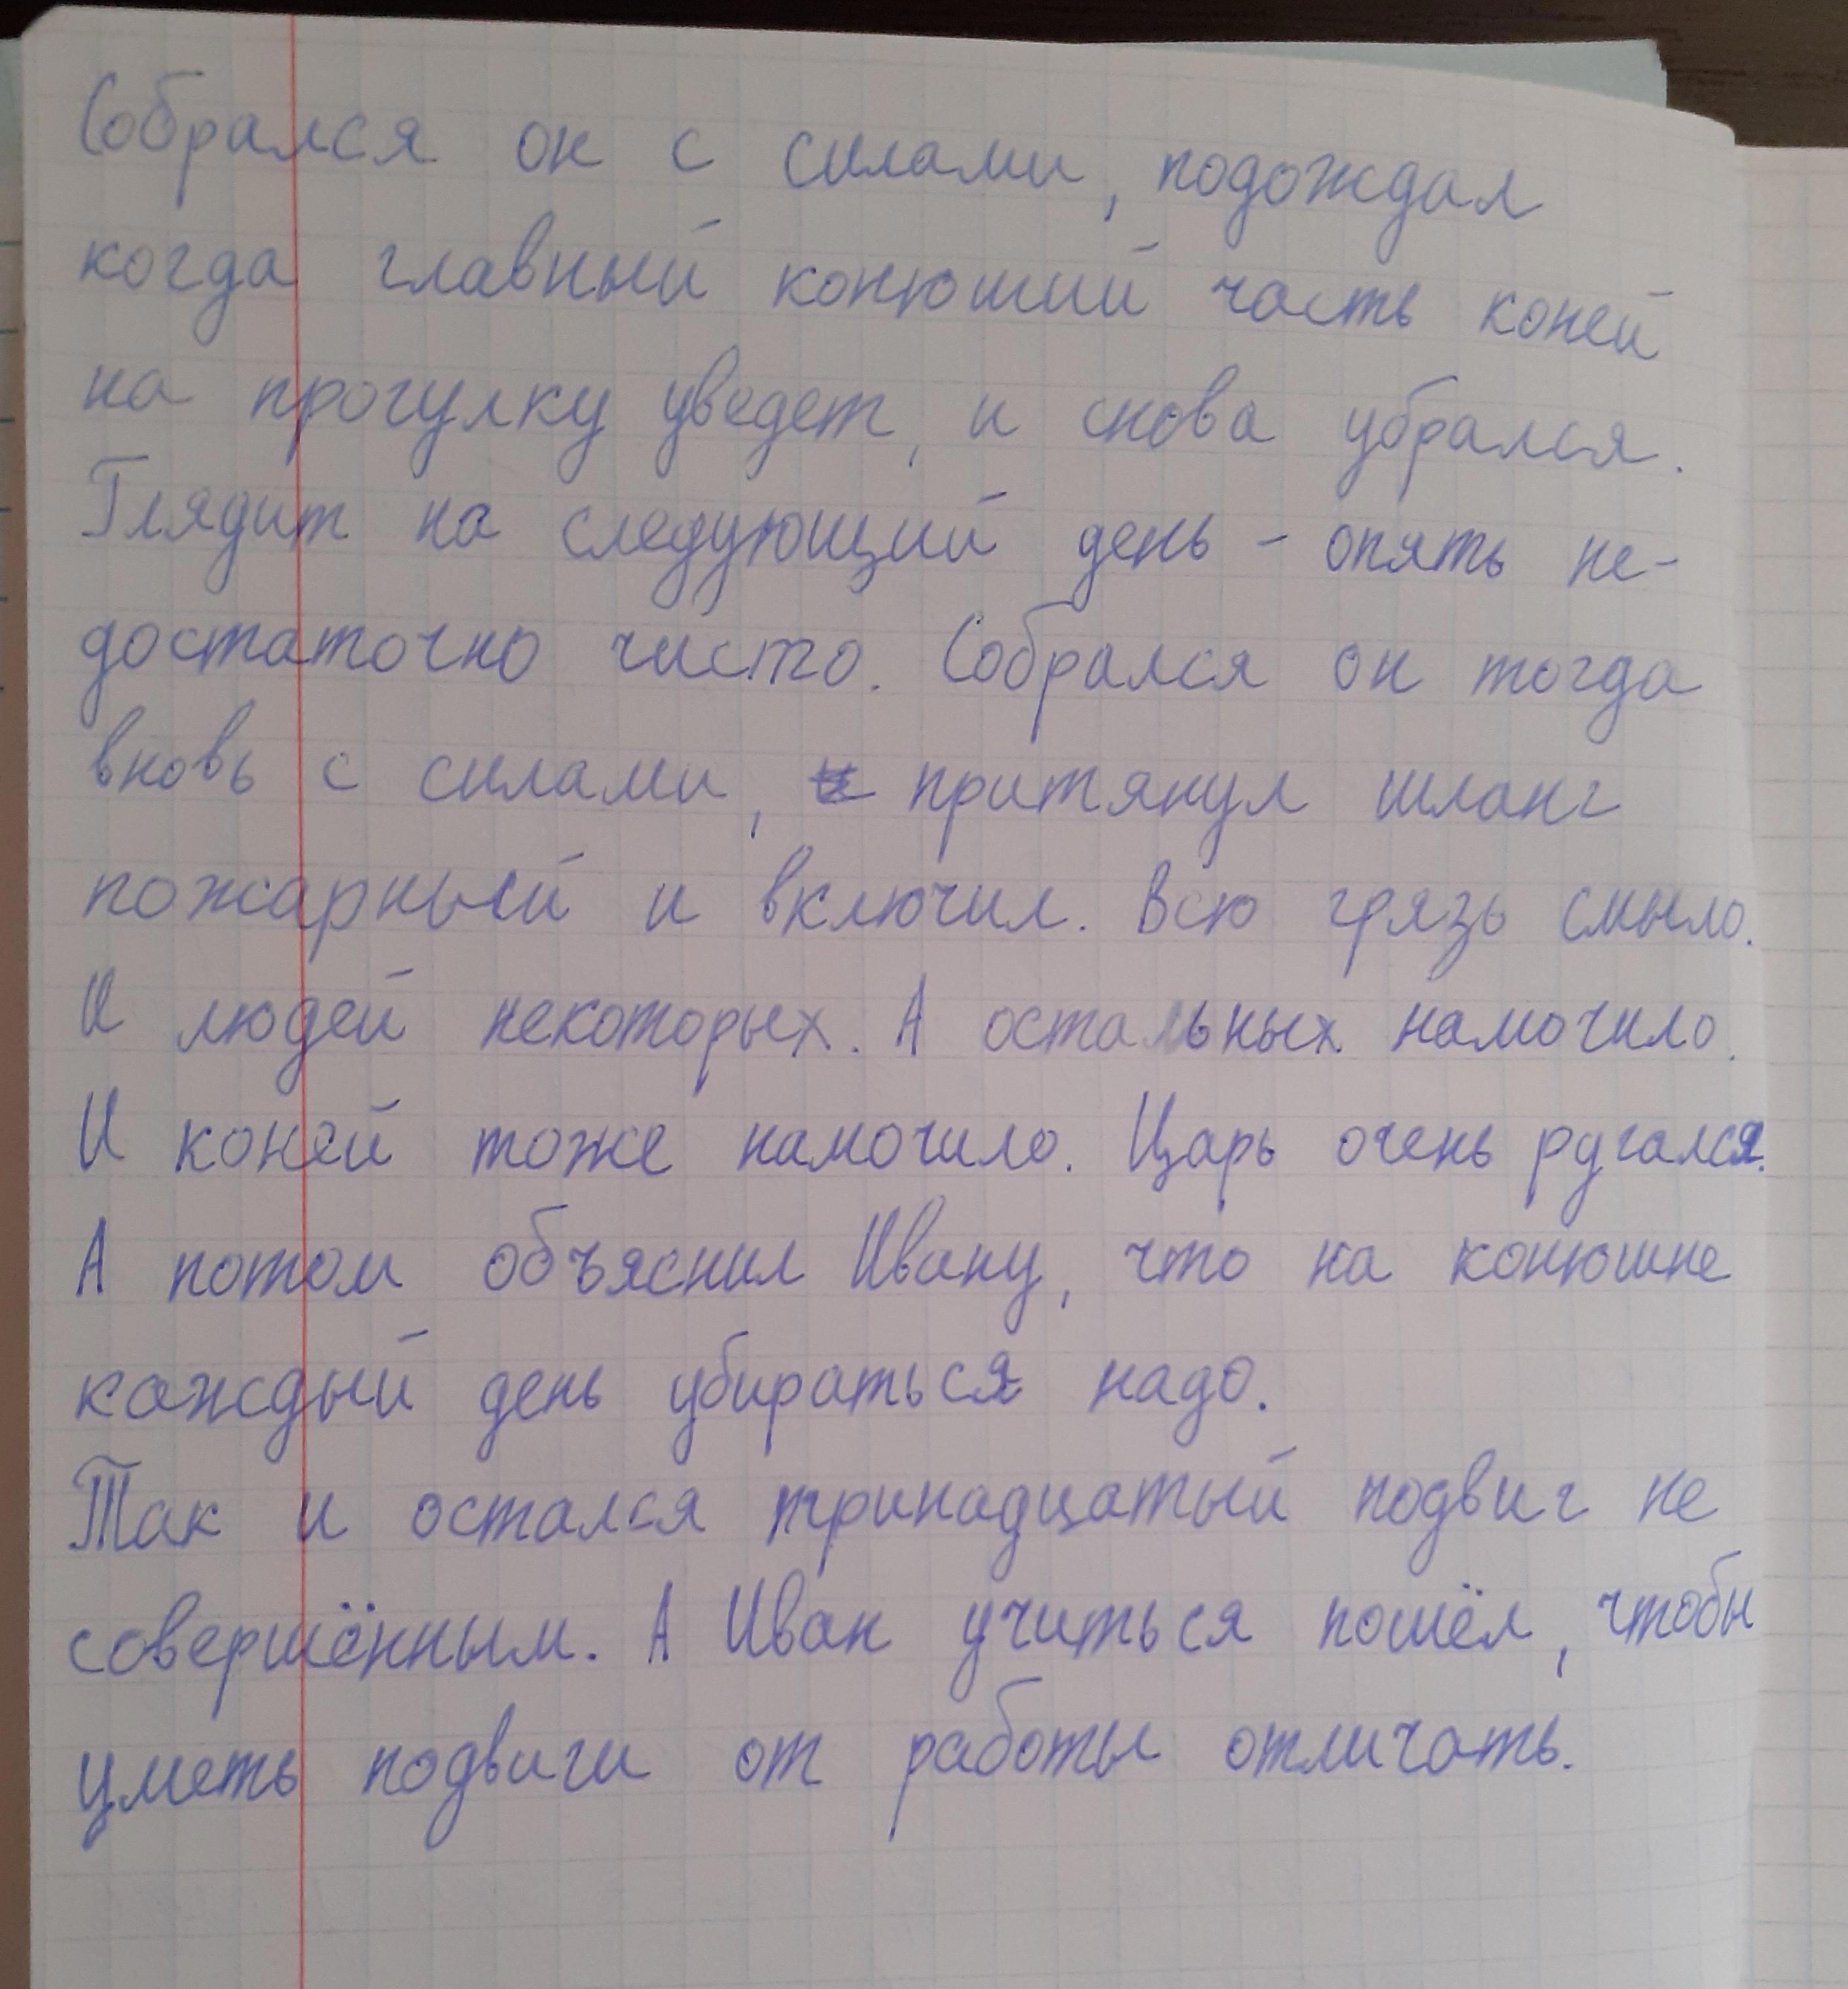 Собрался он с силами, подождал
когда главный конюший часть коней
на прогулку уведет, и снова убрался.
Глядит на следующий день - опять не-
достаточно чисто. Собрался он тогда
вновь с силами, притянул шланг
пожарный и включил. Всю грязь смыло.
И людей некоторых. А остальных намочило.
И коней тоже намочило. Царь очень ругался.
А потом объяснил Ивану, что на конюшне
каждый день убираться надо.
Так и остался тринадцатый подвиг не
совершённым. А Иван учиться пошёл, чтобы
уметь подвиги от работы отличать.